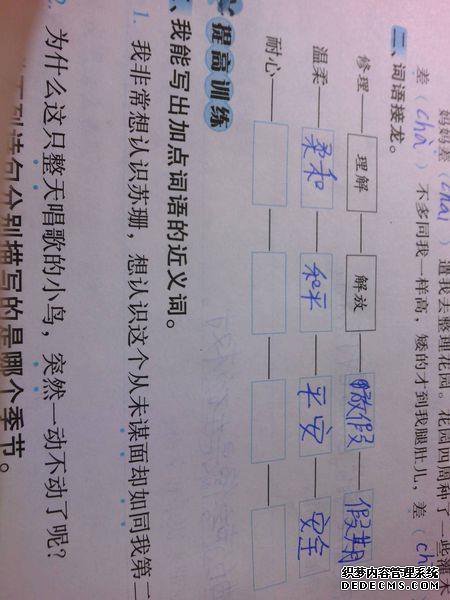 妈妈差（chāi）遣我去整理花园。花园四周种了一些灌木
差（chà）不多同我一样高，矮的才到我腿肚儿，差（ch
二、词语接龙。
修理——理解——解放——放假——假期
温柔——柔和——和平——平安——安全
耐心——
提高训练
、我能写出加点词语的近义词。
1. 我非常想认识苏珊，想认识这个从未谋面却如同我第二
2. 为什么这只整天唱歌的小鸟，突然一动不动了呢？
列诗句分别描写的是哪个季节。
织梦内容管理系统
DEDECMS.COM